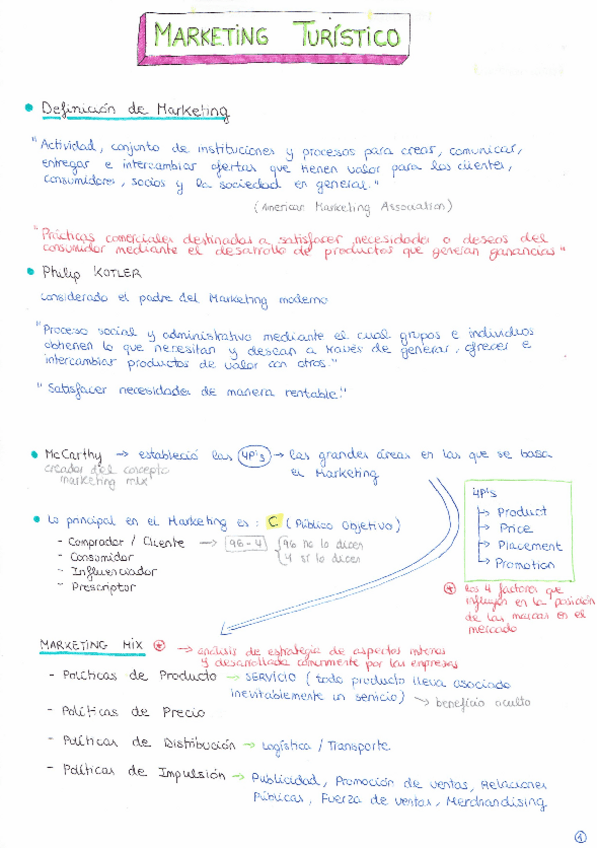 MARKETING TURÍSTICO
• Definición de Marketing
"Actividad, conjunto de instituciones y procesos para crear, comunicar,
entregar e intercambiar ofertas que tienen valor para los clientes,
consumidores, socios y la sociedad en general."
(American Marketing Association)
"Prácticas comerciales destinadas a satisfacer necesidades o deseos del
consumidor mediante el desarrollo de productos que generan ganancias"
• Philip KOTLER
considerado el padre del Marketing moderno
"Proceso social y administrativo mediante el cual grupos e individuos
obtienen lo que necesitan y desean a través de generar, ofrecer e
intercambiar productos de valor con otros."
"Satisfacer necesidades de manera rentable."
• McCarthy → estableció las 4P's → las grandes áreas en las que se basa
el Marketing
creador del concepto
marketing mix
4P's
→ Product
→ Price
→ Placement
→ Promotion
⊛ los 4 factores que
influyen en la posición
de las marcas en el
mercado
• Lo principal en el Marketing es: C (Público Objetivo)
- Comprador / Cliente → 96-4 { 96 no lo dicen
4 sí lo dicen
- Consumidor
- Influenciador
- Prescriptor
MARKETING MIX ⊛ → análisis de estrategia de aspectos internos
y desarrollada comunmente por las empresas
- Políticas de Producto → SERVICIO (todo producto lleva asociado
inevitablemente un servicio) → beneficio oculto
- Políticas de Precio
- Políticas de Distribución → Logística / Transporte
- Políticas de Impulsión → Publicidad, Promoción de ventas, Relaciones
Públicas, Fuerza de ventas, Merchandising
1